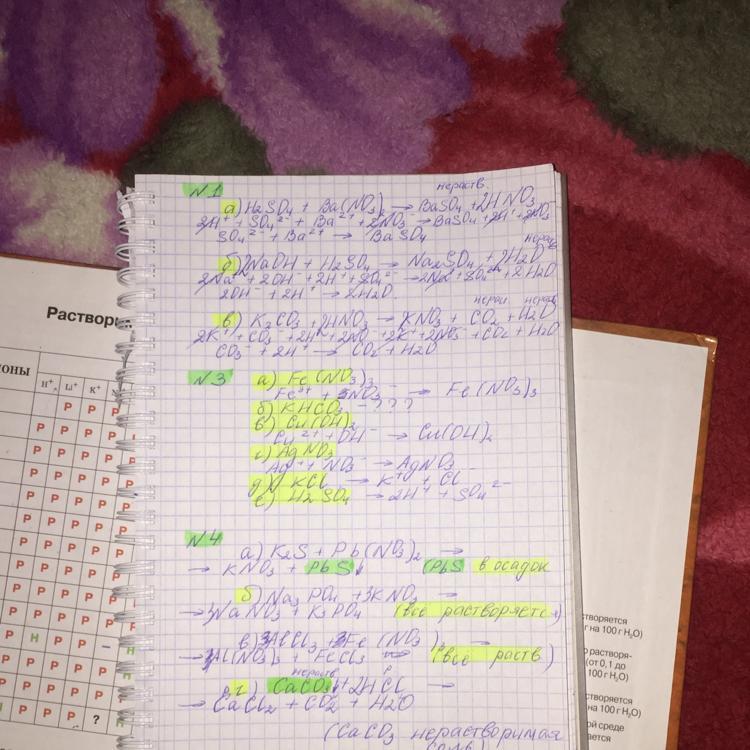 N1
нераств.
а) H2SO4 + Ba(NO3)2 → BaSO4 + 2HNO3
2H⁺ + SO4²⁻ + Ba²⁺ + 2NO3⁻ → BaSO4 + 2H⁺ + 2NO3⁻
SO4²⁻ + Ba²⁺ → BaSO4
б) 2NaOH + H2SO4 → Na2SO4 + 2H2O
2Na⁺ + 2OH⁻ + 2H⁺ + SO4²⁻ → 2Na⁺ + SO4²⁻ + 2H2O
2OH⁻ + 2H⁺ → 2H2O.
в) K2CO3 + 2HNO3 → KNO3 + CO2 + H2O
2K⁺ + CO3²⁻ + 2H⁺ + 2NO3⁻ → 2K⁺ + 2NO3⁻ + CO2 + H2O
CO3²⁻ + 2H⁺ → CO2 + H2O
N3 а) Fe(NO3)3
NO3⁻ → Fe(NO3)3
б) KHCO3 - ???
в) Cu(OH)2
Cu²⁺ + OH⁻ → Cu(OH)2
г) AgNO3
Ag⁺ + NO3⁻ → AgNO3
д) KCl → K⁺ + Cl⁻
е) H2SO4 → 2H⁺ + SO4²⁻
N4
а) K2S + Pb(NO3)2 →
→ KNO3 + PbS↓ (PbS в осадок
б) Na3PO4 + 3KNO3 →
→ 3NaNO3 + K3PO4 (всё растворяется)
в) 3AlCl3 + 3Fe(NO3)3 →
→ 3Al(NO3)3 + FeCl3 (всё раств)
нераств. р
г) CaCO3↓ + 2HCl →
→ CaCl2 + CO2 + H2O
(CaCO3 нерастворимая
соль)
Раствори
ионы
H⁺ Li⁺ K⁺
Р Р Р
Р Р Р Р
Р Р Р
Н Р Р – Н
Р Р Р ?
створяется
г на 100 г H2O)
о раство-
(от 0,1 до
100 г H2O)
створяется
на 100 г H2O)
ой среде
ается